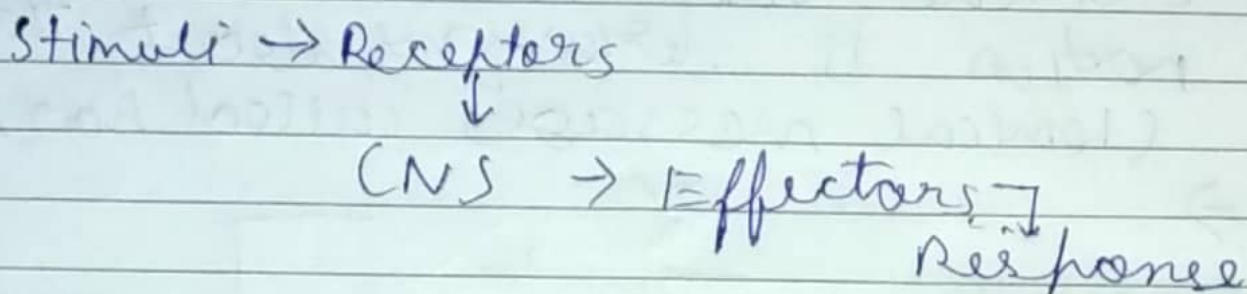 Stimuli → Receptors
↓
CNS → Effectors ↴
Response